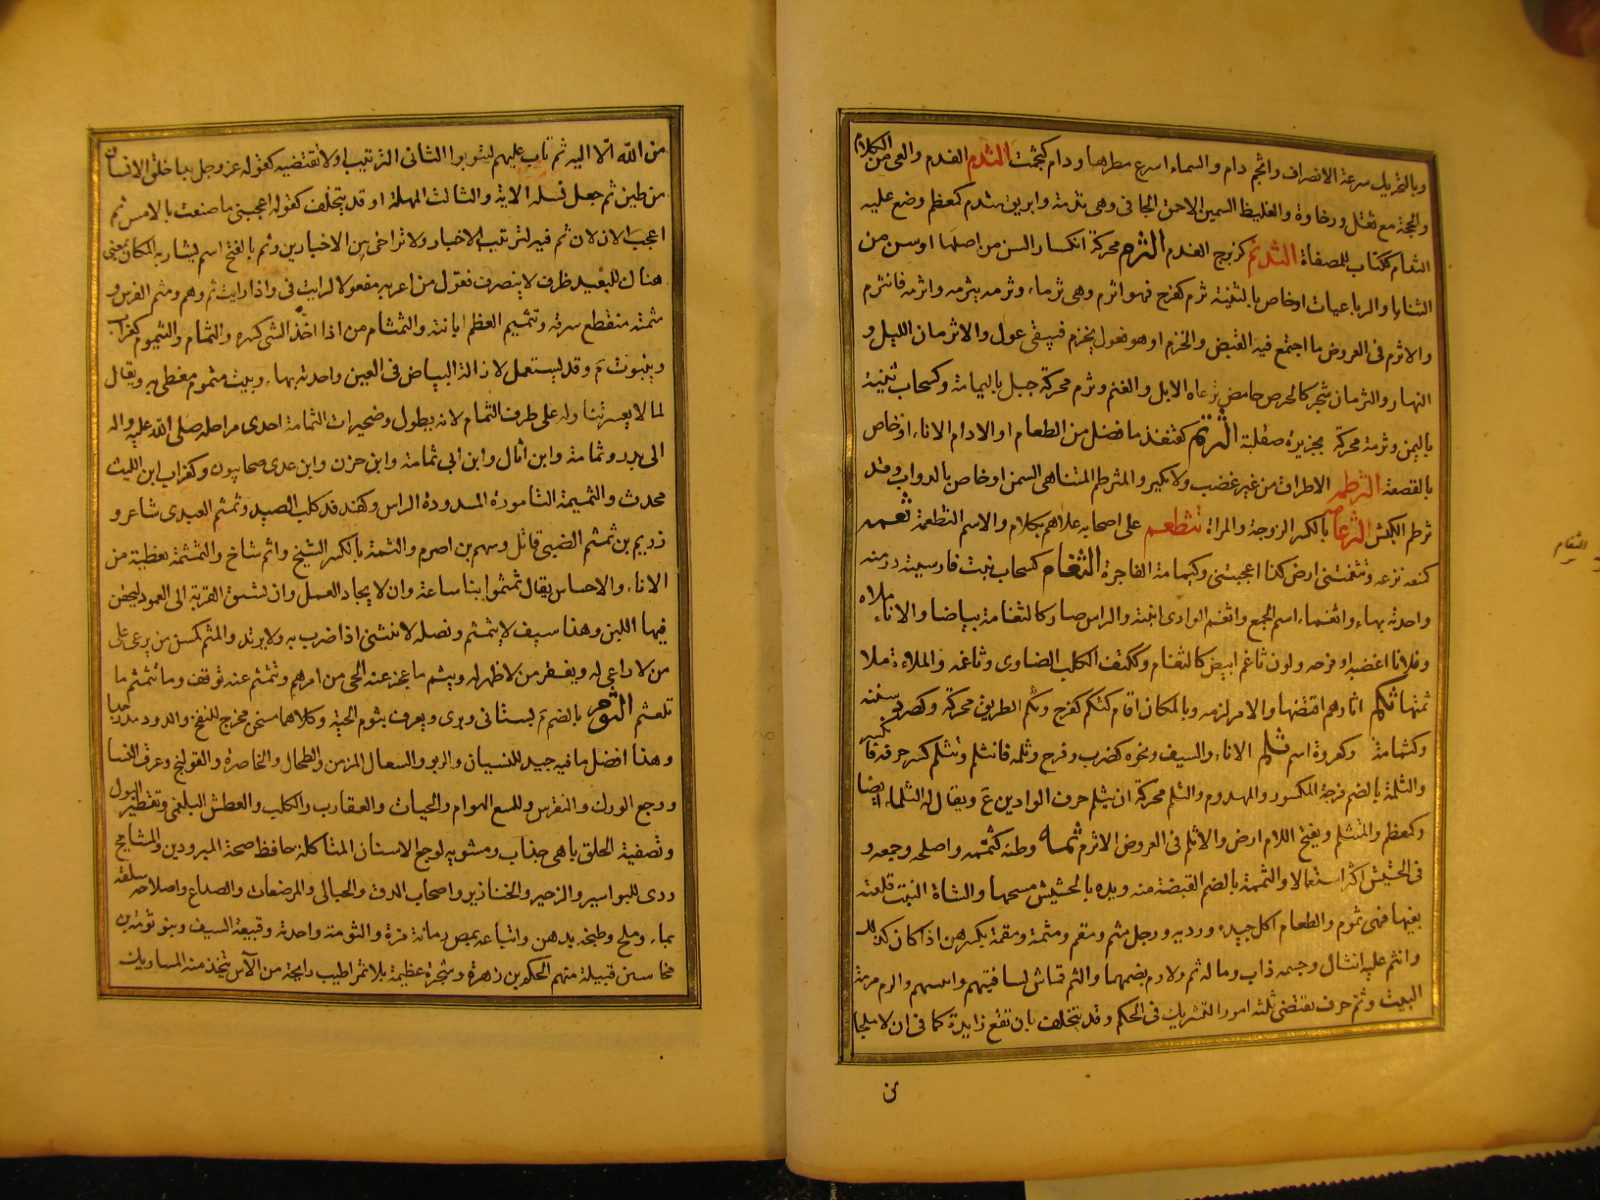 وبالتحريك سرعة الانصراف واثجم دام والسماء اسرع مطرها ودام كثجمت الثدم الفدم والعى من الكلام
والحجة مع ثقل ورخاوة والغليظ السمين الاحمق الجافى وهى ثدمة وابريق مثدم كمعظم وضع عليه
الثدام ككتاب للمصفاة الثدثم كزبرج الفدم الثرم محركة انكسار السن من اصلها او سن من
الثنايا والرباعيات او خاص بالثنية ثرم كفرح فهو اثرم وهى ثرماء وثرمه يثرمه واثرمه فانثرم
والاثرم فى العروض ما اجتمع فيه القبض والخرم او هو فعول يخرم فيبقى عول والاثرمان الليل و
النهار والثرمان شجر كالحرص حامض ترعاه الابل والغنم وثرم محركة جبل باليمامة وكسحاب ثنية
باليمن وثرمة محركة بجزيرة صقلية الثرتم كقنفذ ما فضل من الطعام او الادام الاناء او خاص
بالقصعة الثرطمة الاطراق من غير غضب ولا تكبر والمثرطم المتناهى السمن او خاص بالدواب وقد
ثرطم الكبش الثرعامة بالكسر الزوجة والمراة تثطعم على اصحابه علاهم بكلام والاسم الثطعمة ثعمه
كمنعه نزعه وتثعمتنى ارض كذا اعجبتنى وكيمامة الفاجرة الثغام كسحاب نبت فارسيته درمنه
واحدته بهاء واثغماء اسم الجمع واثغم الوادى انبته والراس صار كالثغامة بياضا والاناء ملاه
وفلانا اغضبه او فرحه ولون ثاغم ابيض كالثغام وككتف الكلب الضارى وثاغمه والملاءة ملا
ثمتها ثكم اثارهم اقتصها والامر لزمه وبالمكان اقام كثكم كفرح وثكم الطريق محركة وكصرد سننه
وكثمامة وكهروة اسم ثلم الاناء والسيف ونحوه كضرب وفرح وثلمه فانثلم وتثلم كسر حرفه فانكسر
والثلمة بالضم فرجة المكسور والمهدوم والثلم محركة ان يثلم حرف الوادى ع ويقال له الثلماء ايضا
وكمعظم والمتثلم ويفتح اللام ارض والاثلم فى العروض الاثرم ثمه وطئه كثمثمه واصلحه وجمعه و
فى الحشيش اكثر استعمالا والثمة بالضم القبضة منه ويده بالحشيش مسحها والشاة النبت قلعته
بفيها فهى ثموم والطعام اكل جيده ورديه ورجل مثم ومقم ومثمة ومقمة بكسرهن اذا كان كذلك
وانثم عليه انثال وجسمه ذاب وماله ثم ولا رم بضمهما والثم قماش اساقيهم وانيتهم والرم مرمة
البيت وثم حرف يقتضى ثلثة امور التشريك فى الحكم وقد يتخلف بان تقع زايدة كما فى ان لا ملجا
من
من الله الا اليه ثم تاب عليهم ليتوبوا الثانى الترتيب او لا تقتضيه كقوله عز وجل بدا خلق الانسان
من طين ثم جعل نسله الاية والثالث المهلة او قد يتخلف كقوله اعجبنى ما صنعت بالامس ثم
اعجب الان لان ثم فيه لترتيب الاخبار ولا تراخى بين الاخبارين وثم بالفتح اسم يشار به للمكان بمعنى
هناك للبعيد ظرف لا ينصرف فقول من اعربه مفعولا لرايت فى واذا رايت ثم وهم ومثم الفرس و
مثمته منقطع سرته وتثميم العظم ابانته والثمثام من اذا اخذ الشى كسره والثمام والثموم كغراب
وينبوت نم وقد يستعمل لازالة البياض فى العين واحدته بهاء وبيت مثموم مغطى به ويقال
لما لا يعسر تناوله على طرف الثمام لانه يطول وصخيرات الثمامة احدى مراحله صلى الله عليه واله
الى بدر وثمامة وابن اثال وابن ابى ثمامة وابن حزن وابن عدى صحابيون وكغراب ابن الليث
محدث والثميمة التامورة المسدودة الراس وكهدهد كلب الصيد وثمثم العبدى شاعر و
زديم بن ثمثم الضبى قاتل وسهم بن اصرم والثمة بالكسر الشيخ واثم شاخ والثمثمة تغطية من
الاناء والاحساس يقال ثمثموا بنا ساعة وان لا يجاد العمل وان تشنق القربة الى العمود ليحقن
فيها اللبن وهذا سيف لا يثمثم ونصله لا ينثنى اذا ضرب به ولا يرتد والمثم كمسن من يرعى على
من لا راعى له ويفقر من لا ظهر له ويثم ما عجز عنه الحى من امرهم وتثمثم عنه توقف وما تثمثم ما
تلعثم الثوم بالضم م بستانى وبرى ويعرف بثوم الحية وكلاهما مسخن مخرج للنفخ والدود مدر جدا
وهذا افضل ما فيه جيد للنسيان والربو والسعال المزمن والطحال والخاصرة والقولنج وعرق النسا
ووجع الورك والنقرس وللسع الهوام والحيات والعقارب والكلب والعطش البلغمى وتقطير البول
وتصفية الحلق باهى جذاب ومشويه لوجع الاسنان المتاكلة حافظ صحة المبرودين والمشايخ
ردى للبواسير والزحير والخنازير واصحاب الدق والحبالى والمرضعات والصداع واصلاحه سلقه
بماء وملح وطبخه بدهن واتباعه بمص رمانة مزة والثومة واحدته وقبيعة السيف وبنو ثومة بن
مخاسن قبيلة منهم الحكم بن زهرة وشجرة عظيمة بلا ثمر اطيب رايحة من الاس يتخذ منه المساويك
الثغام